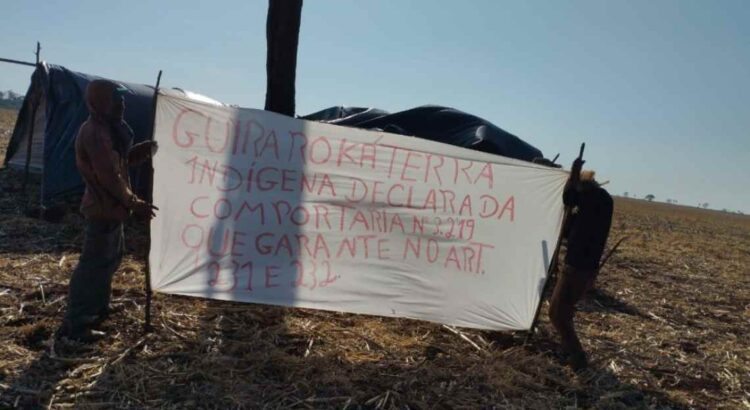 GUIRA ROKÁ TERRA
INDÍGENA DECLARADA
COM PORTARIA Nº 3.219
QUE GARANTE NO ART.
231 E 232.